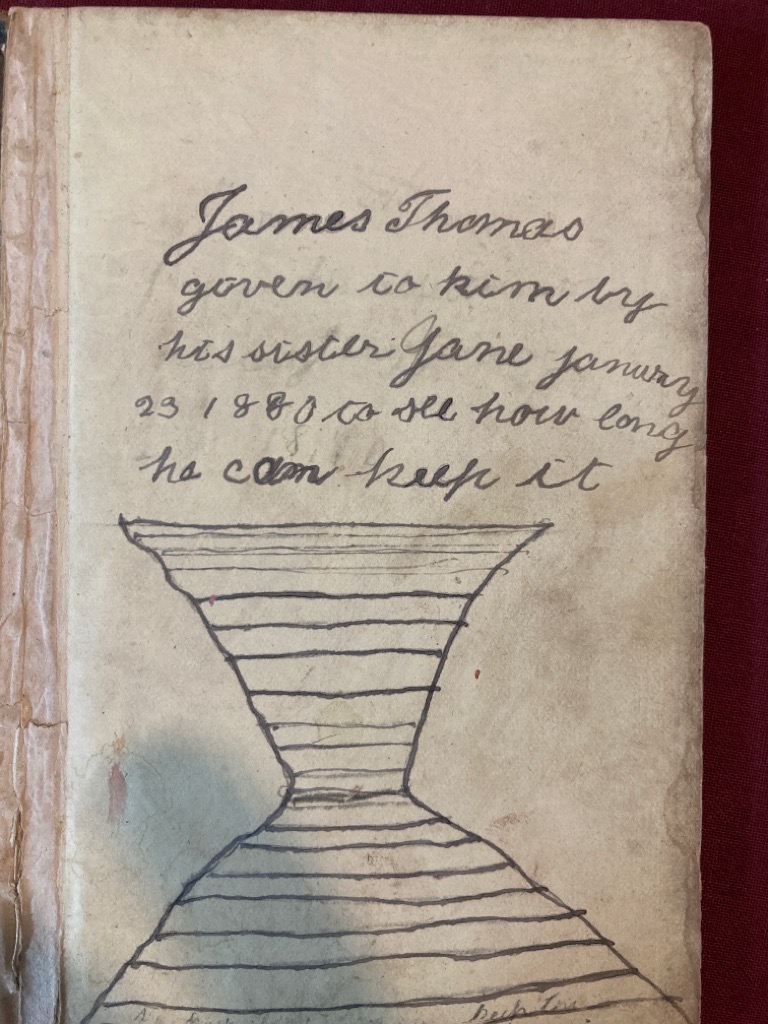 James Thomas
goven to him by
his sister Jane january
23 1880 to see how long
he can keep it
keep